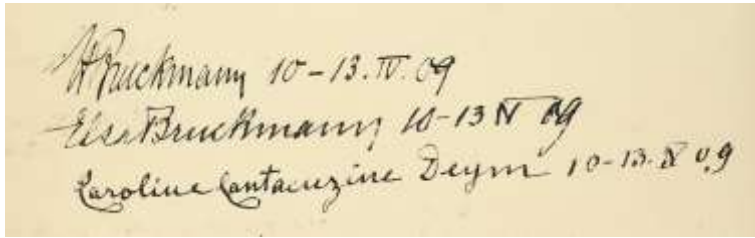 HBruckmann 10-13.IV.09
Elsa Bruckmann 10-13 IV 09
Caroline Cantacuzène Deym 10-13. IV 09